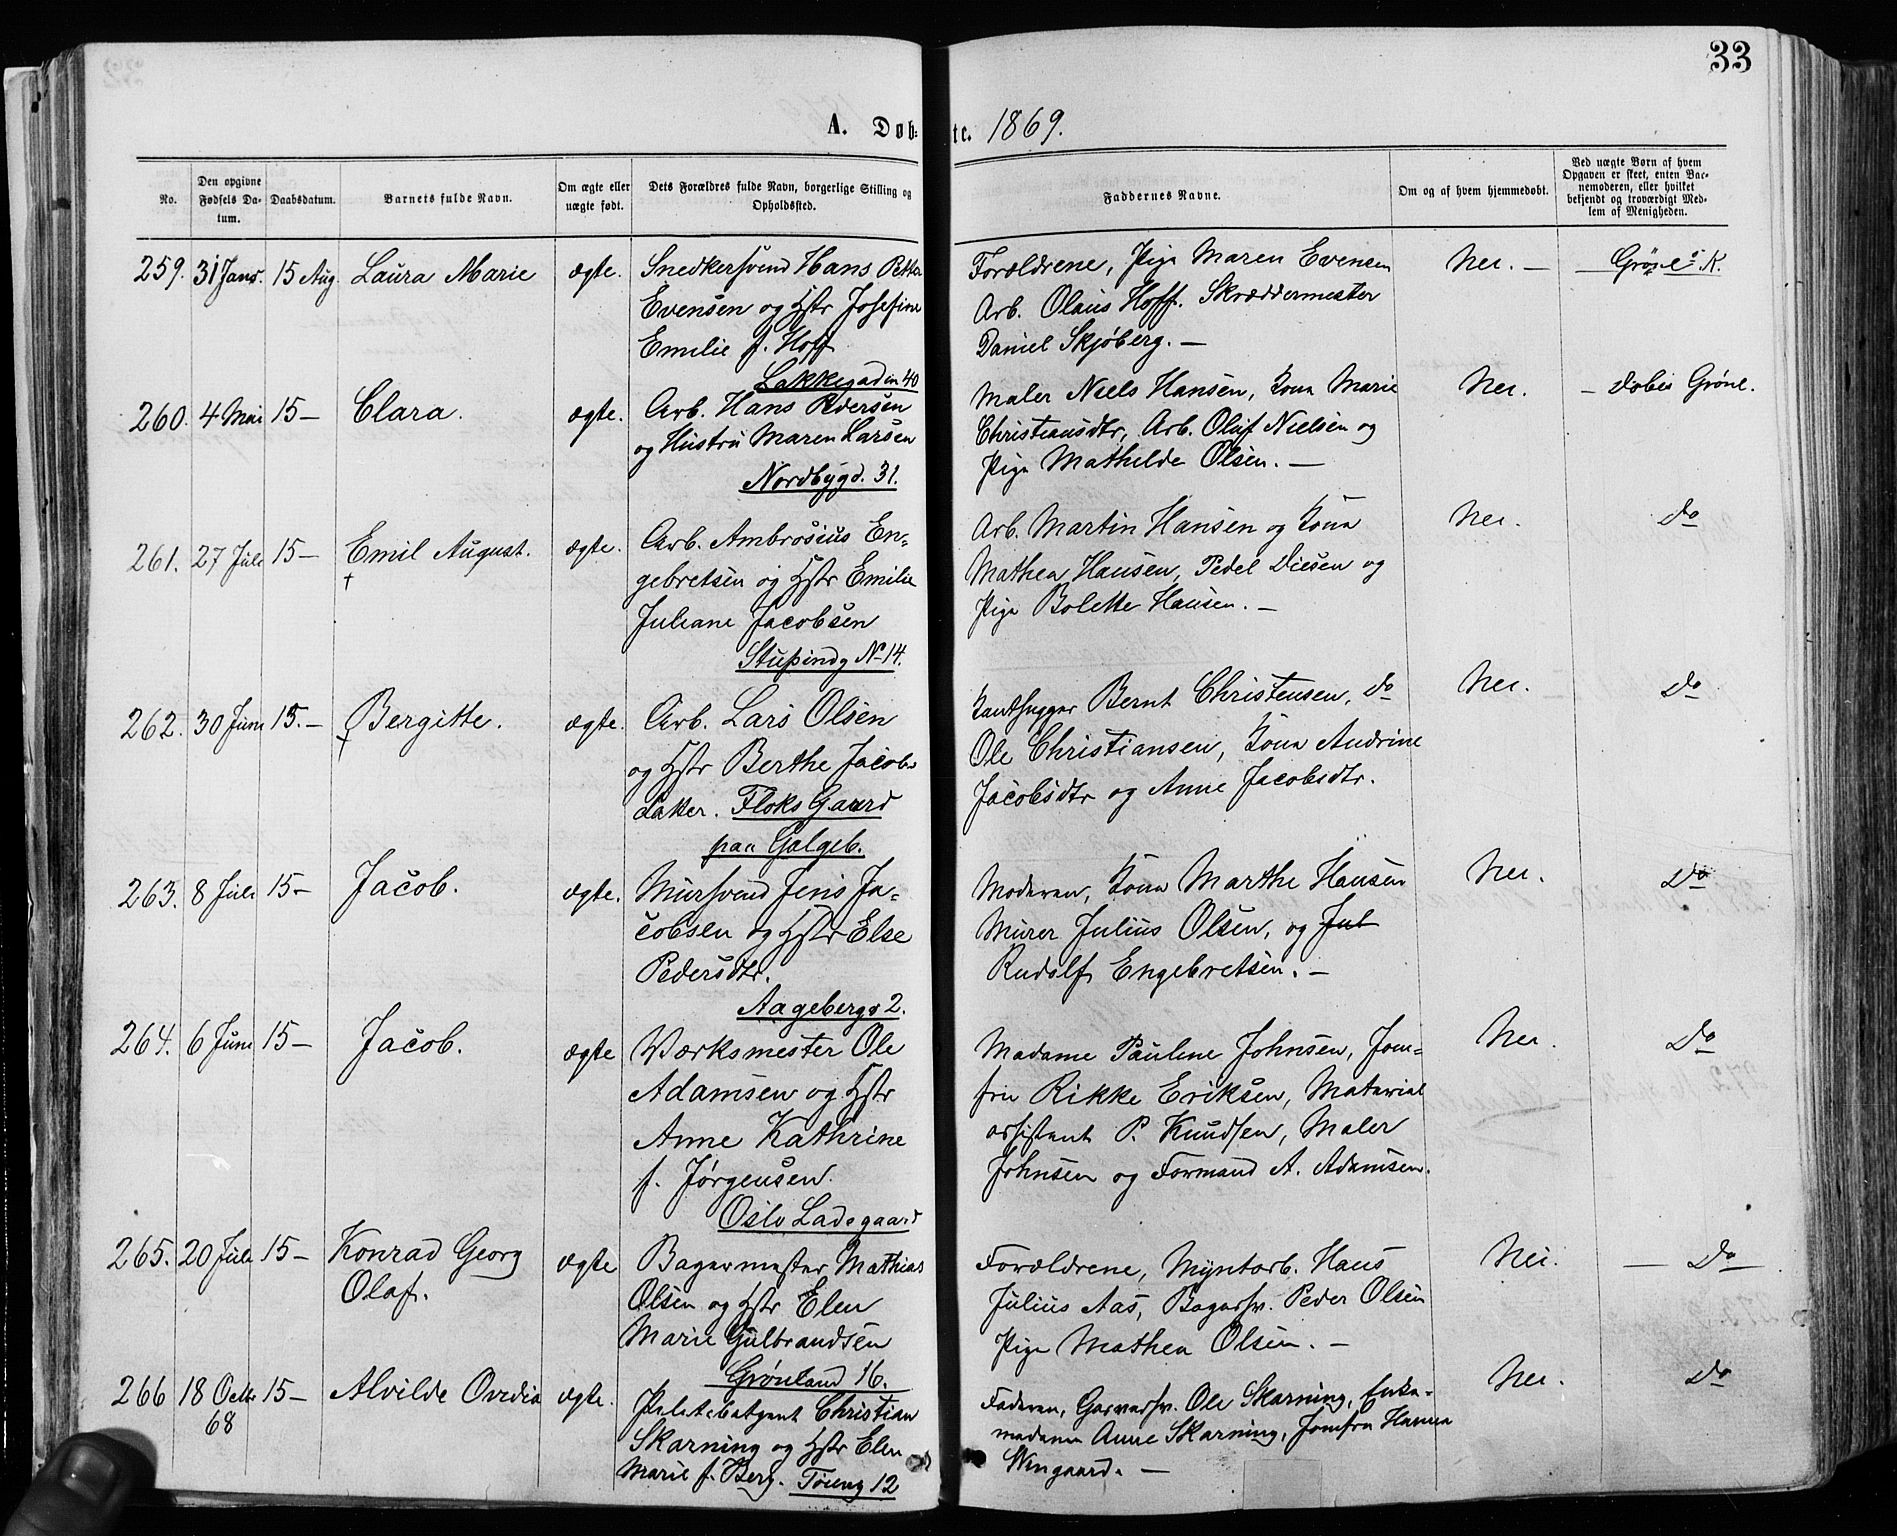 33
A. Døb-
te. 1869.
No.
Den opgivne Fødsels Da-tum.
Daabsdatum.
Barnets fulde Navn.
Om ægte eller uægte født.
Dets Forældres fulde Navn, borgerlige Stilling og Opholdssted.
Faddernes Navne.
Om og af hvem hjemmedøbt.
Ved uægte Børn af hvem Opgaven er skeet, enten Bar-nemoderen, eller hvilket bekjendt og troværdigt Med-lem af Menigheden.
259. 31 Janr. 15 Aug. Laura Marie ægte. Snedkersvend Hans Petter
Evensen og Hstr Josefine
Emilie f. Hoff
Lakkegaden 40
Forældrene, Pige Maren Evensen
Arb. Olaus Hoff. Skræddermester
Daniel Skjøberg. —
Nei. —
Grønl: K.
260. 4 Mai 15 — Clara. ægte. Arb. Hans Pedersen
og Hustru Maren Larsen
Nordbygd. 31.
Maler Niels Hansen, Kona Marie
Christiansdtr, Arb. Oluf Nielsen og
Pige Mathilde Olsen. —
Nei.
— Døbes Grønl.
261. 27 Juli 15 — Emil August. ægte. Arb. Ambrosius En-
†
gebretsen og Hstr Emilie
Juliane Jacobsen
Stupindg No 14.
Arb. Martin Hansen og Kona
Mathea Hansen, Pedel Diesen og
Pige Bolette Hansen. —
Nei.
Do
262. 30 Juni 15. — Bergitte. ægte. Arb. Lars Olsen
†
og Hstr Berthe Jacobs-
datter. Floks Gaard
paa Galgeb.
Kanthugger Bernt Christensen, Do
Ole Christiansen, Kona Andrine
Jacobsdtr og Anne Jacobsdtr.
Nei.
Do
263. 8 Juli 15 — Jacob. ægte. Mursvend Jens Ja-
cobsen og Hstr Else
Pedersdtr.
Aagebergv 2.
Moderen, Kona Marthe Hansen
Murer Julius Olsen, og Jul
Rudolf Engebretsen. —
Nei.
Do
264. 6 Juni 15 — Jacob. ægte Værksmester Ole
Adamsen og Hstr
Anne Kathrine
f. Jørgensen.
Oslo Ladegaard
Madame Pauline Johnsen, Jom-
fru Rikke Eriksen, Material
assistent P. Knudsen, Maler
Johnsen og Formand A. Adamsen.
Nei.
Do
265. 20 Juli 15 — Konrad Georg ægte Bagermester Mathias
Olaf.
Olsen og Hstr Elen
Marie Gulbrandsen
Grønland 16.
Forældrene, Myntarb. Hans
Julius Aas, Bagersv. Peder Olsen
Pige Mathea Olsen. —
Nei.
— Do —
266 18 Octbr 15 — Alvilde Ovidia ægte.
68
Politibetjent Christian
Skarning og Hstr Elen
Marie f. Berg. Tøieng 12
Faderen, Garversv. Ole Skarning, Enke-
madame Anne Skarning, Jomfru Hanna
Wingaard. —
Nei.
Do